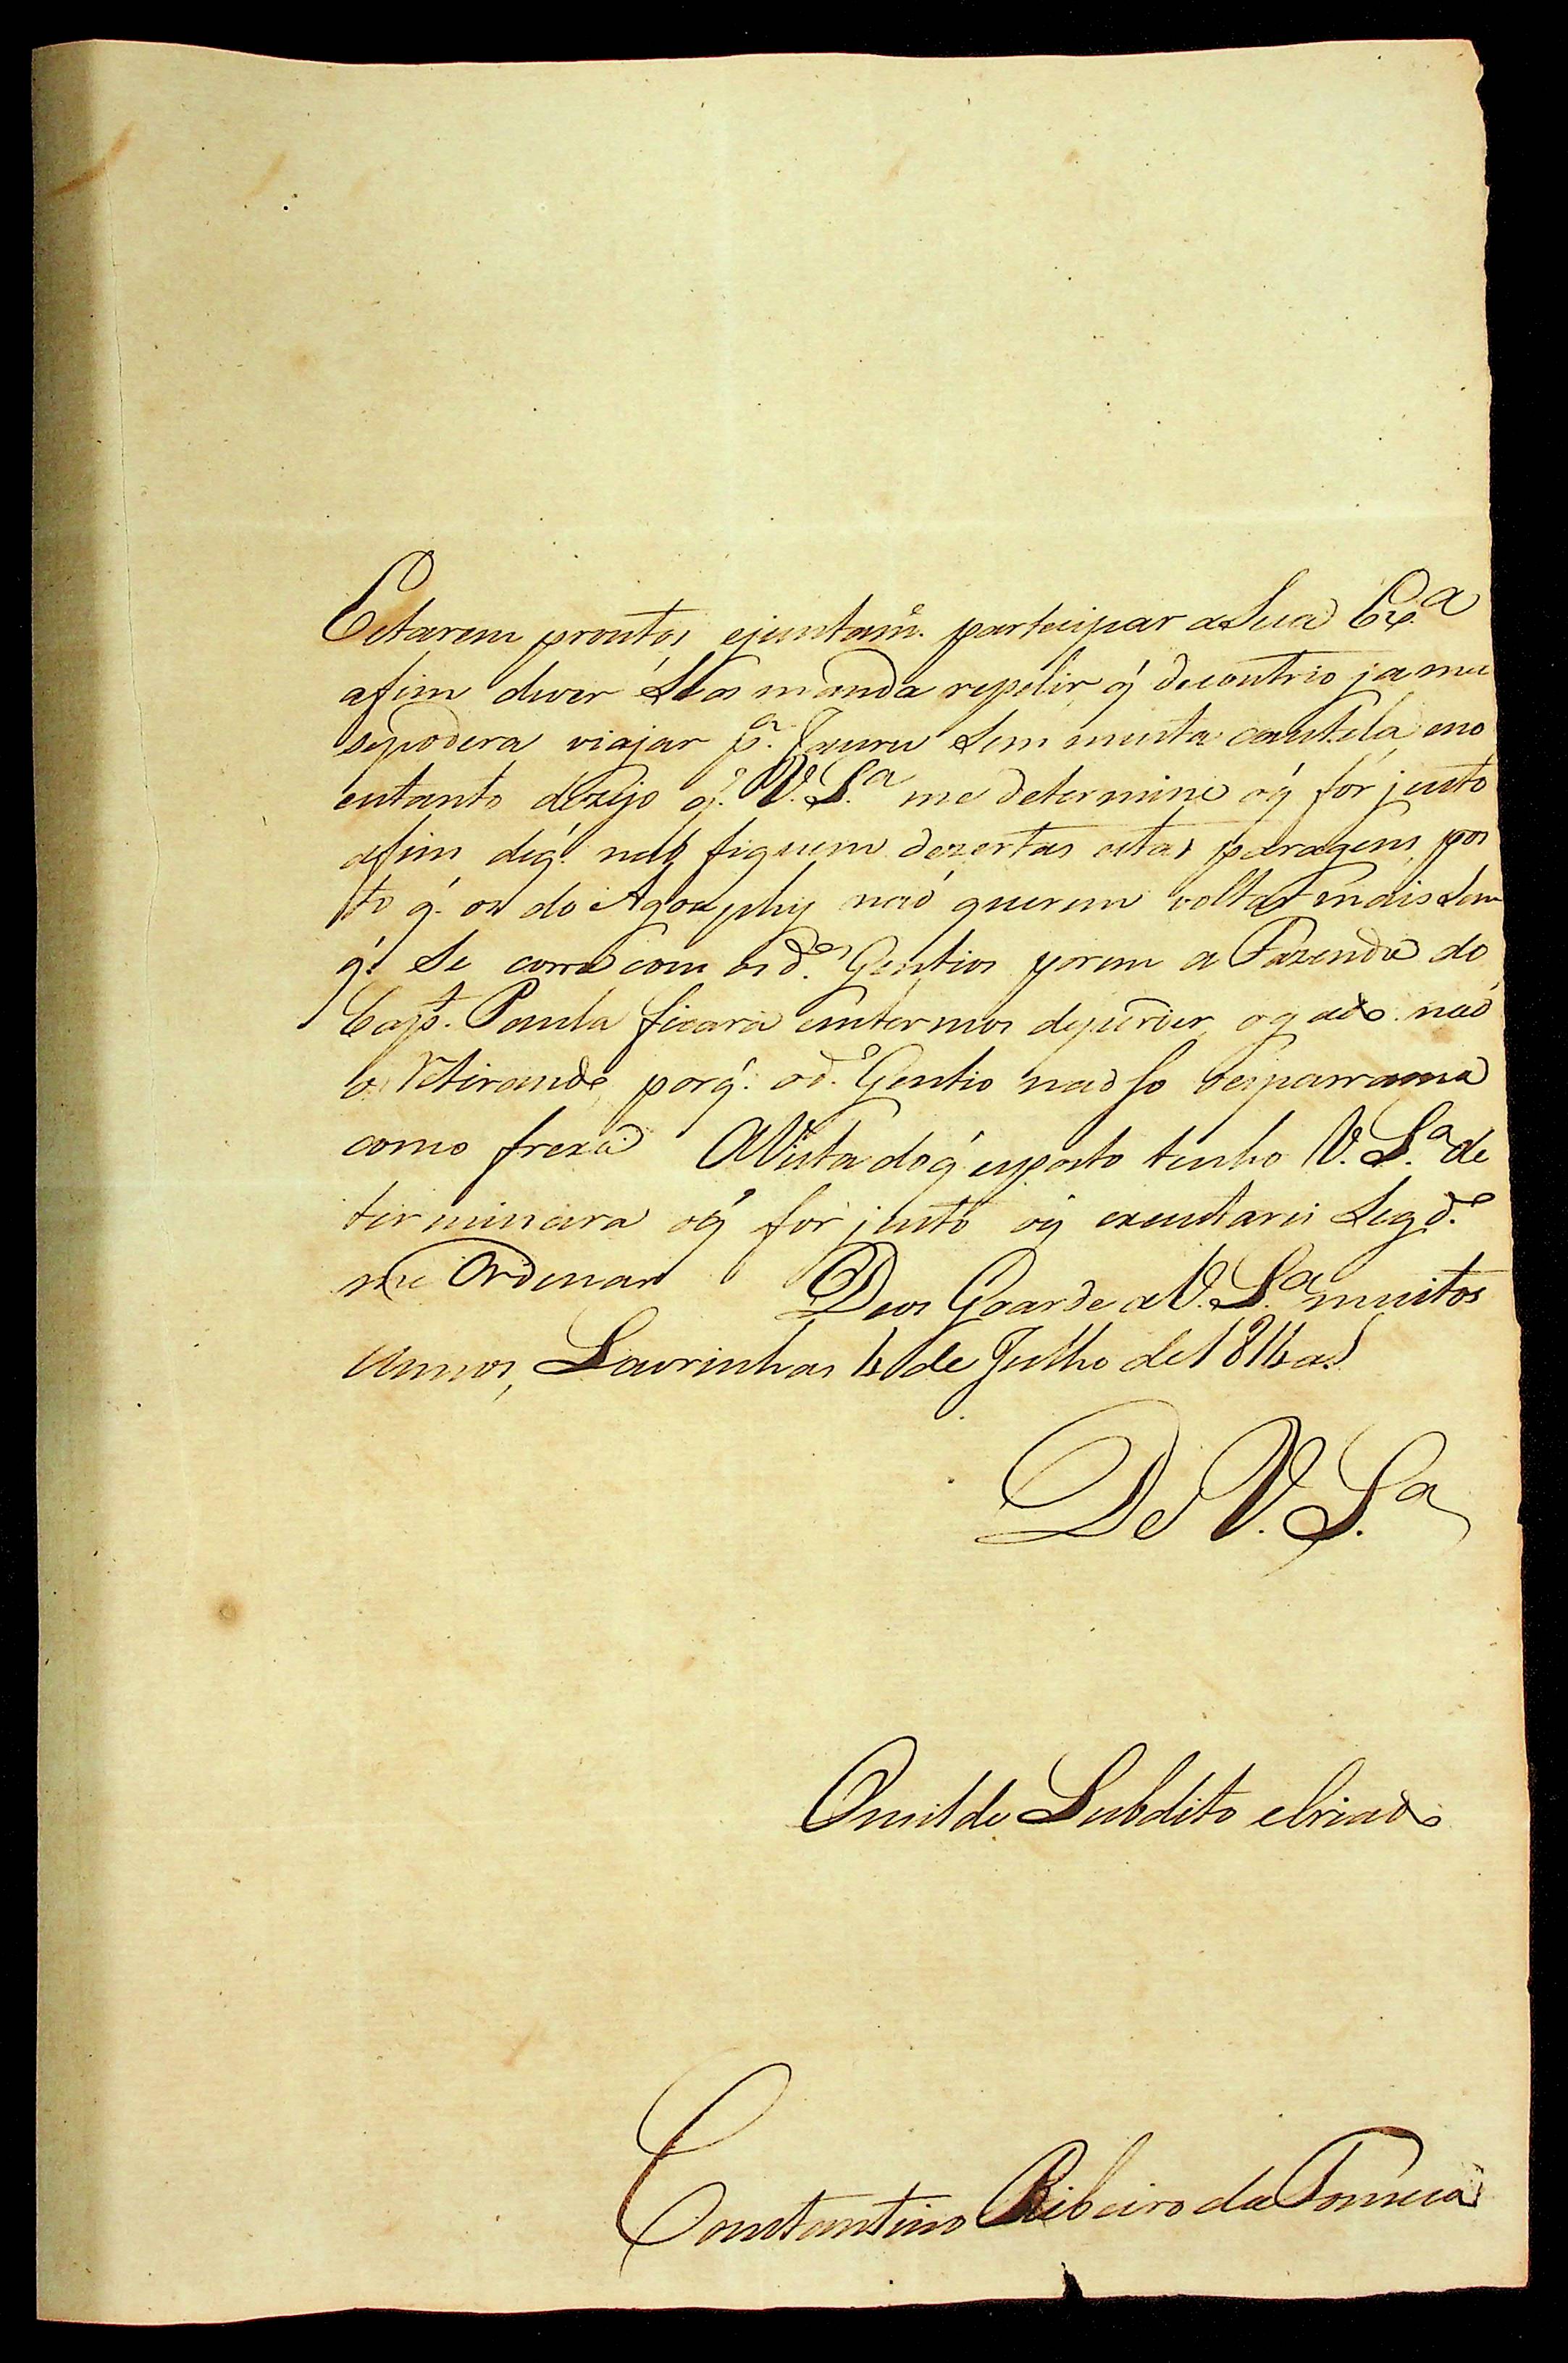 Estarem prontos ejuntam.e participar a Sua Ex.a
afim dever Se os manda repelir, q' decontrio ja mei
sepodera viajar p.a Jauru Sem muita cautela, eno
entanto dezejo q.' V. S.a me determine oq' for justo
afim deq.' naõ fiquem dezertas estas paragens, pos
to q.' os do Agoaphy naõ querem voltar mais Sem
q.' Se corra com os d.os Gentios porem a Fazenda do
Cap.t Paula ficara emtermos deperder, ogado naõ
o retirando, porq.' o d.o Gentio naõ so
como frexa AVista doq' exposto tenho V. S.a de
terminara oq' for justo oq' executarei Seg d.o
me Ordenar Deos Goarde a V. S.a muitos
annos, Lavrinhas 4 de Julho de 1814 a.s
De V. S.a
Omilde Subdito eCriado
Constantino Ribeiro da Fonceca